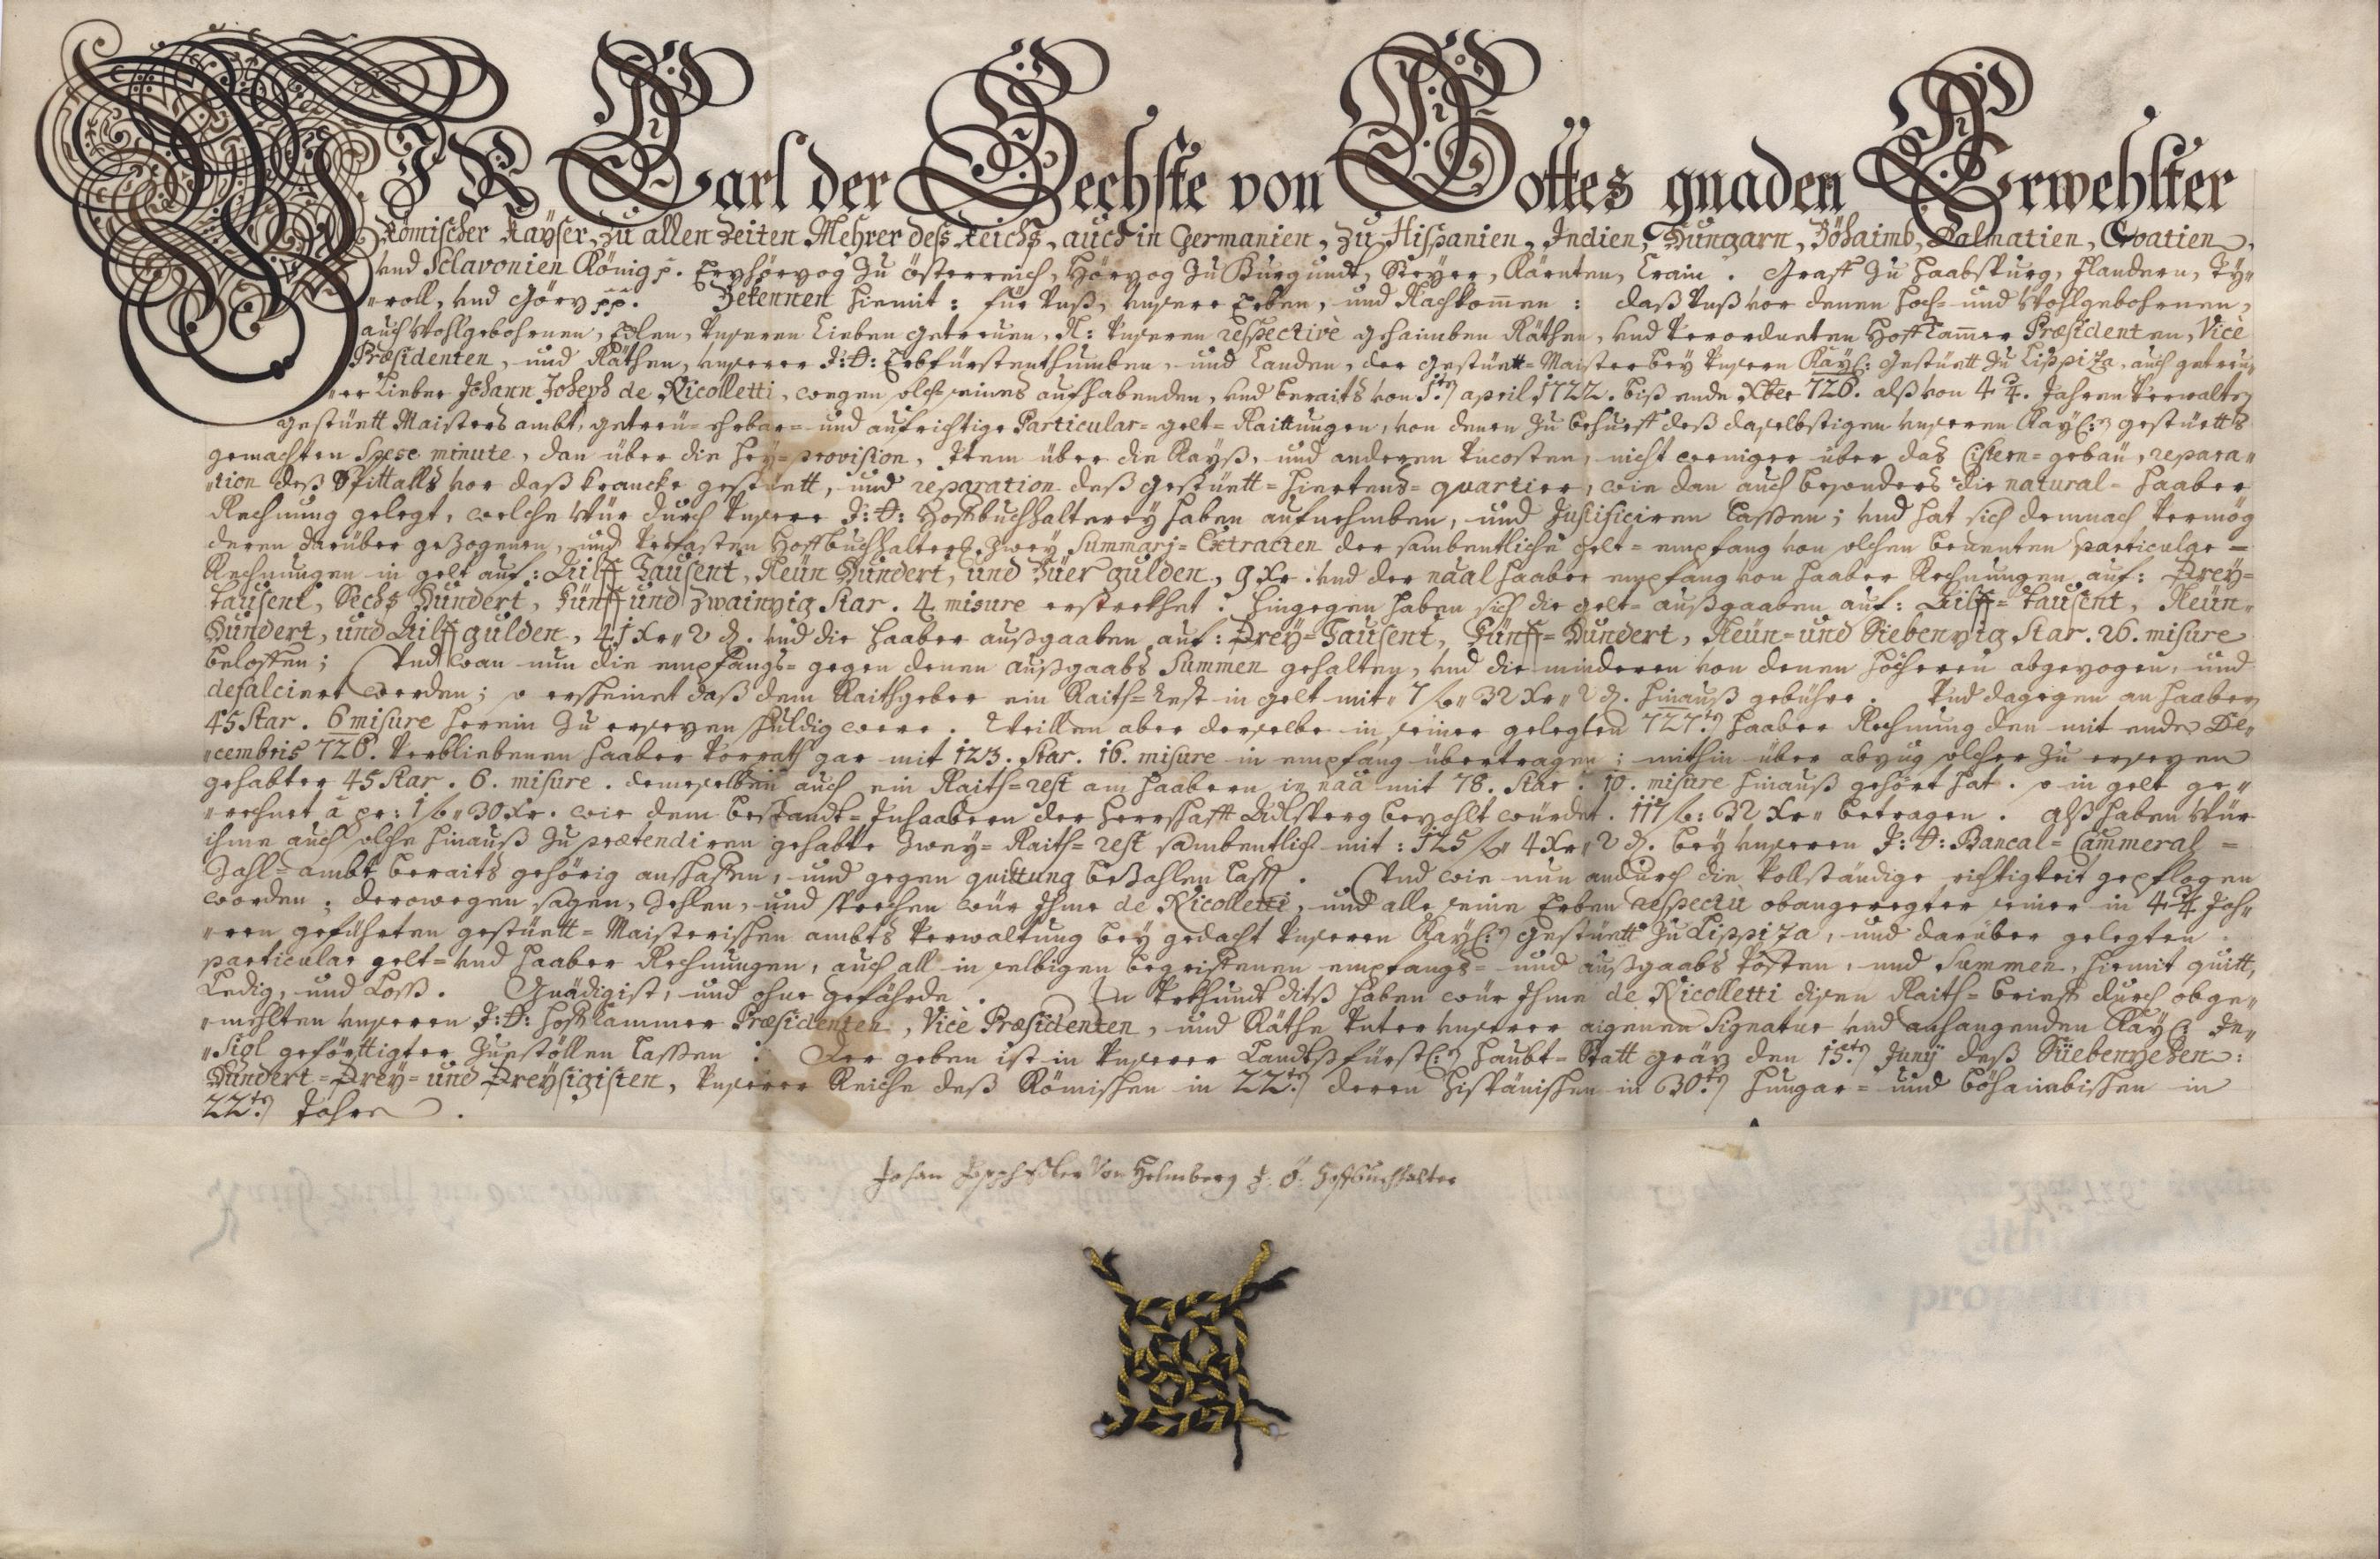 WIR Carl der Sechste von Gottes gnaden Erwehlter
Römischer Kayser, zu allen Zeiten Mehrer deß Reichs, auch in Germanien, zu Hispanien, Indien, Hungarn, Böhaimb, Dalmatien, Croatien,
und Sclavonien König p. Erzhörzog zu Österreich, Hörzog zu Burgundt, Steyer, Kärnten, Crain. Graff zu Haabspurg, Flandern, Ty„
„roll, und Görz pp. Bekennen hiemit: für Unß, unsere Erben, und Nachkomen: daß Unß vor denen Hoch- und Wohlgebohrnen,
auch Wohlgebohrnen, Edlen, Unseren Lieben getreuen, N: Unseren respective gehaimben Räthen, und Verordneten Hoff Camer Præsidenten, Vice
Præsidenten, und Räthen, unserer I:Ö: Erbfürstenthumben, und Landen, der Gestüett-Maister bey Unsern Kayl: Gestüett zu Lippiza, auch getreu„
„er Lieber Johann Joseph de Nicolletti, wegen solch seines aufhabenden, und beraits von 1ten april 1722. biß ende Xber 726. alß von 4¾. Jahren Verwalten
gestüett Maisters ambt, getreu- ehrbar- und aufrichtige Particular- gelt- Raittungen, von denen zu behueff deß daselbstigen unseren Kayl: gestüetts
gemachten Spese minute, dan über die Hey-provision, Item über die Rayß, und anderen Uncosten, nicht weniger über das Cistern-gebäu, repara„
„tion deß Spittalls vor daß krancke gestüett, und reparation deß gestüett-hierttens-quartier, wie dan auch besonders die natural-Haaber
Rechnung gelegt, welche Wür durch Unsere I:Ö: Hoffbuchhalterey haben aufnehmben, und Justificiren lassen; und hat sich demnach Vermög
deren darüber gezogenen, und Verfasten Hoffbuchhalterl: zwey Summarj-Extracten der sambentliche gelt-empfang von solchen benenten particular-
Rechnungen in gelt auf: Eilff Tausent, Neün Hundert, und Vier gulden, 9 Xr. und der naal haaber empfang von haaber Rechnungen auf: Drey-
tausent, Sechs Hundert, Fünff und Zwainzig Star. 4 misure erstrekhet. Hingegen haben sich die gelt-außgaaben auf: Eilff-tausent, Neün-
Hundert, und Eilff gulden, 41 Xr„ 2 d. und die haaber außgaaben auf: Drey-Tausent, Fünff-Hundert, Neün-und Siebenzig Star. 26. misure
beloffen; Und wan nun die empfangs- gegen denen außgaabs Summen gehalten, und die minderen von denen höcheren abgezogen, und
defalciert werden; so erscheinet daß dem Raithgeber ein Raith-Rest in gelt mit„ 7 fl„ 32 Xr„ 2 d. hinauß gebühre. Und dagegen an Haaber
45 Star. 6 misure herein zu ersezen schuldig were. Weillen aber derselbe in seiner gelegten 727ten Haaber Rechnung den mit ende De„
„cembris 726. Verbliebenen Haaber Vorrath gar mit 123. Star. 16. misure in empfang übertragen; mithin über abzug solcher zu ersezen
gehabter 45 Star. 6. misure. demeselben auch ein Raith-rest am Haabern in naa mit 78. Star. 10. misure hinauß gehört hat. so in gelt ge„
„rechnet à pr: 1 fl„ 30 Xr. wie dem Bestandt-Inhaabern der Herrschafft Adlsperg bezahlt würdet. 117 fl: 32 Xr„ betragen. Alß haben Wür
ihme auch solche hinauß zu prætendiren gehabte zwey-Raith-rest sambentlich mit: 125 fl„ 4 Xr„ 2 d. bey unseren I:Ö: Bancal-Cammeral-
Zahl-ambt beraits gehörig anschaffen, und gegen quittung bezahlen lassen. Und wie nun andurch die Vollständige richtigkeit gepflogen
worden; derowegen sagen, Zehlen, und sprechen wür Ihme de Nicolletti, und alle seine Erben respectu obangeregter seiner in 4¾ Jah„
„ren geführten gestüett-Maisterischen ambts Verwaltung bey gedacht Unseren Kayl: Gestüett zu Lippiza, und darüber gelegten
particular gelt- und Haaber Rechnungen, auch all in selbigen begriffenen empfangs- und außgaabs Pösten, und Summen, hiemit quitt,
Ledig, und Loß. Gnädigist, und ohne gefährde. In Uhrkundt diß haben wür Ihme de Nicolletti disen Raith-brieff durch obge„
„mehlten unseren I:Ö: Hoffkammer Præsidenten, Vice Præsidenten, und Räthe Unter unserer aigenen Signatur und anhangenden Kayl: In„
„sigl geförttigter zuestöllen lassen: Der geben ist in Unserer Landtsfürstl: Haubt-Statt Gräz den 15ten Juny deß Siebenzehen:
Hundert-Drey-und Dreysigisten, Unserer Reiche deß Römischen in 22ten deren Hispänischen in 30ten Hungar- und Böhaimbischen in
22ten Jahre.
Johan von Helmberg I: Ö: Hoffbuchhalter